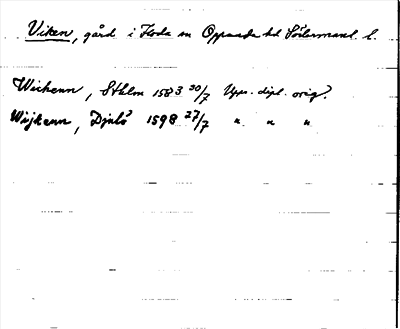 Viken, gård i Floda sn Oppunda hd Södermanl. l.
Wichenn, Sthlm 1583 30/7 Upps. dipl. orig.
Wijkenn, Djulö 1598 27/7 " " "